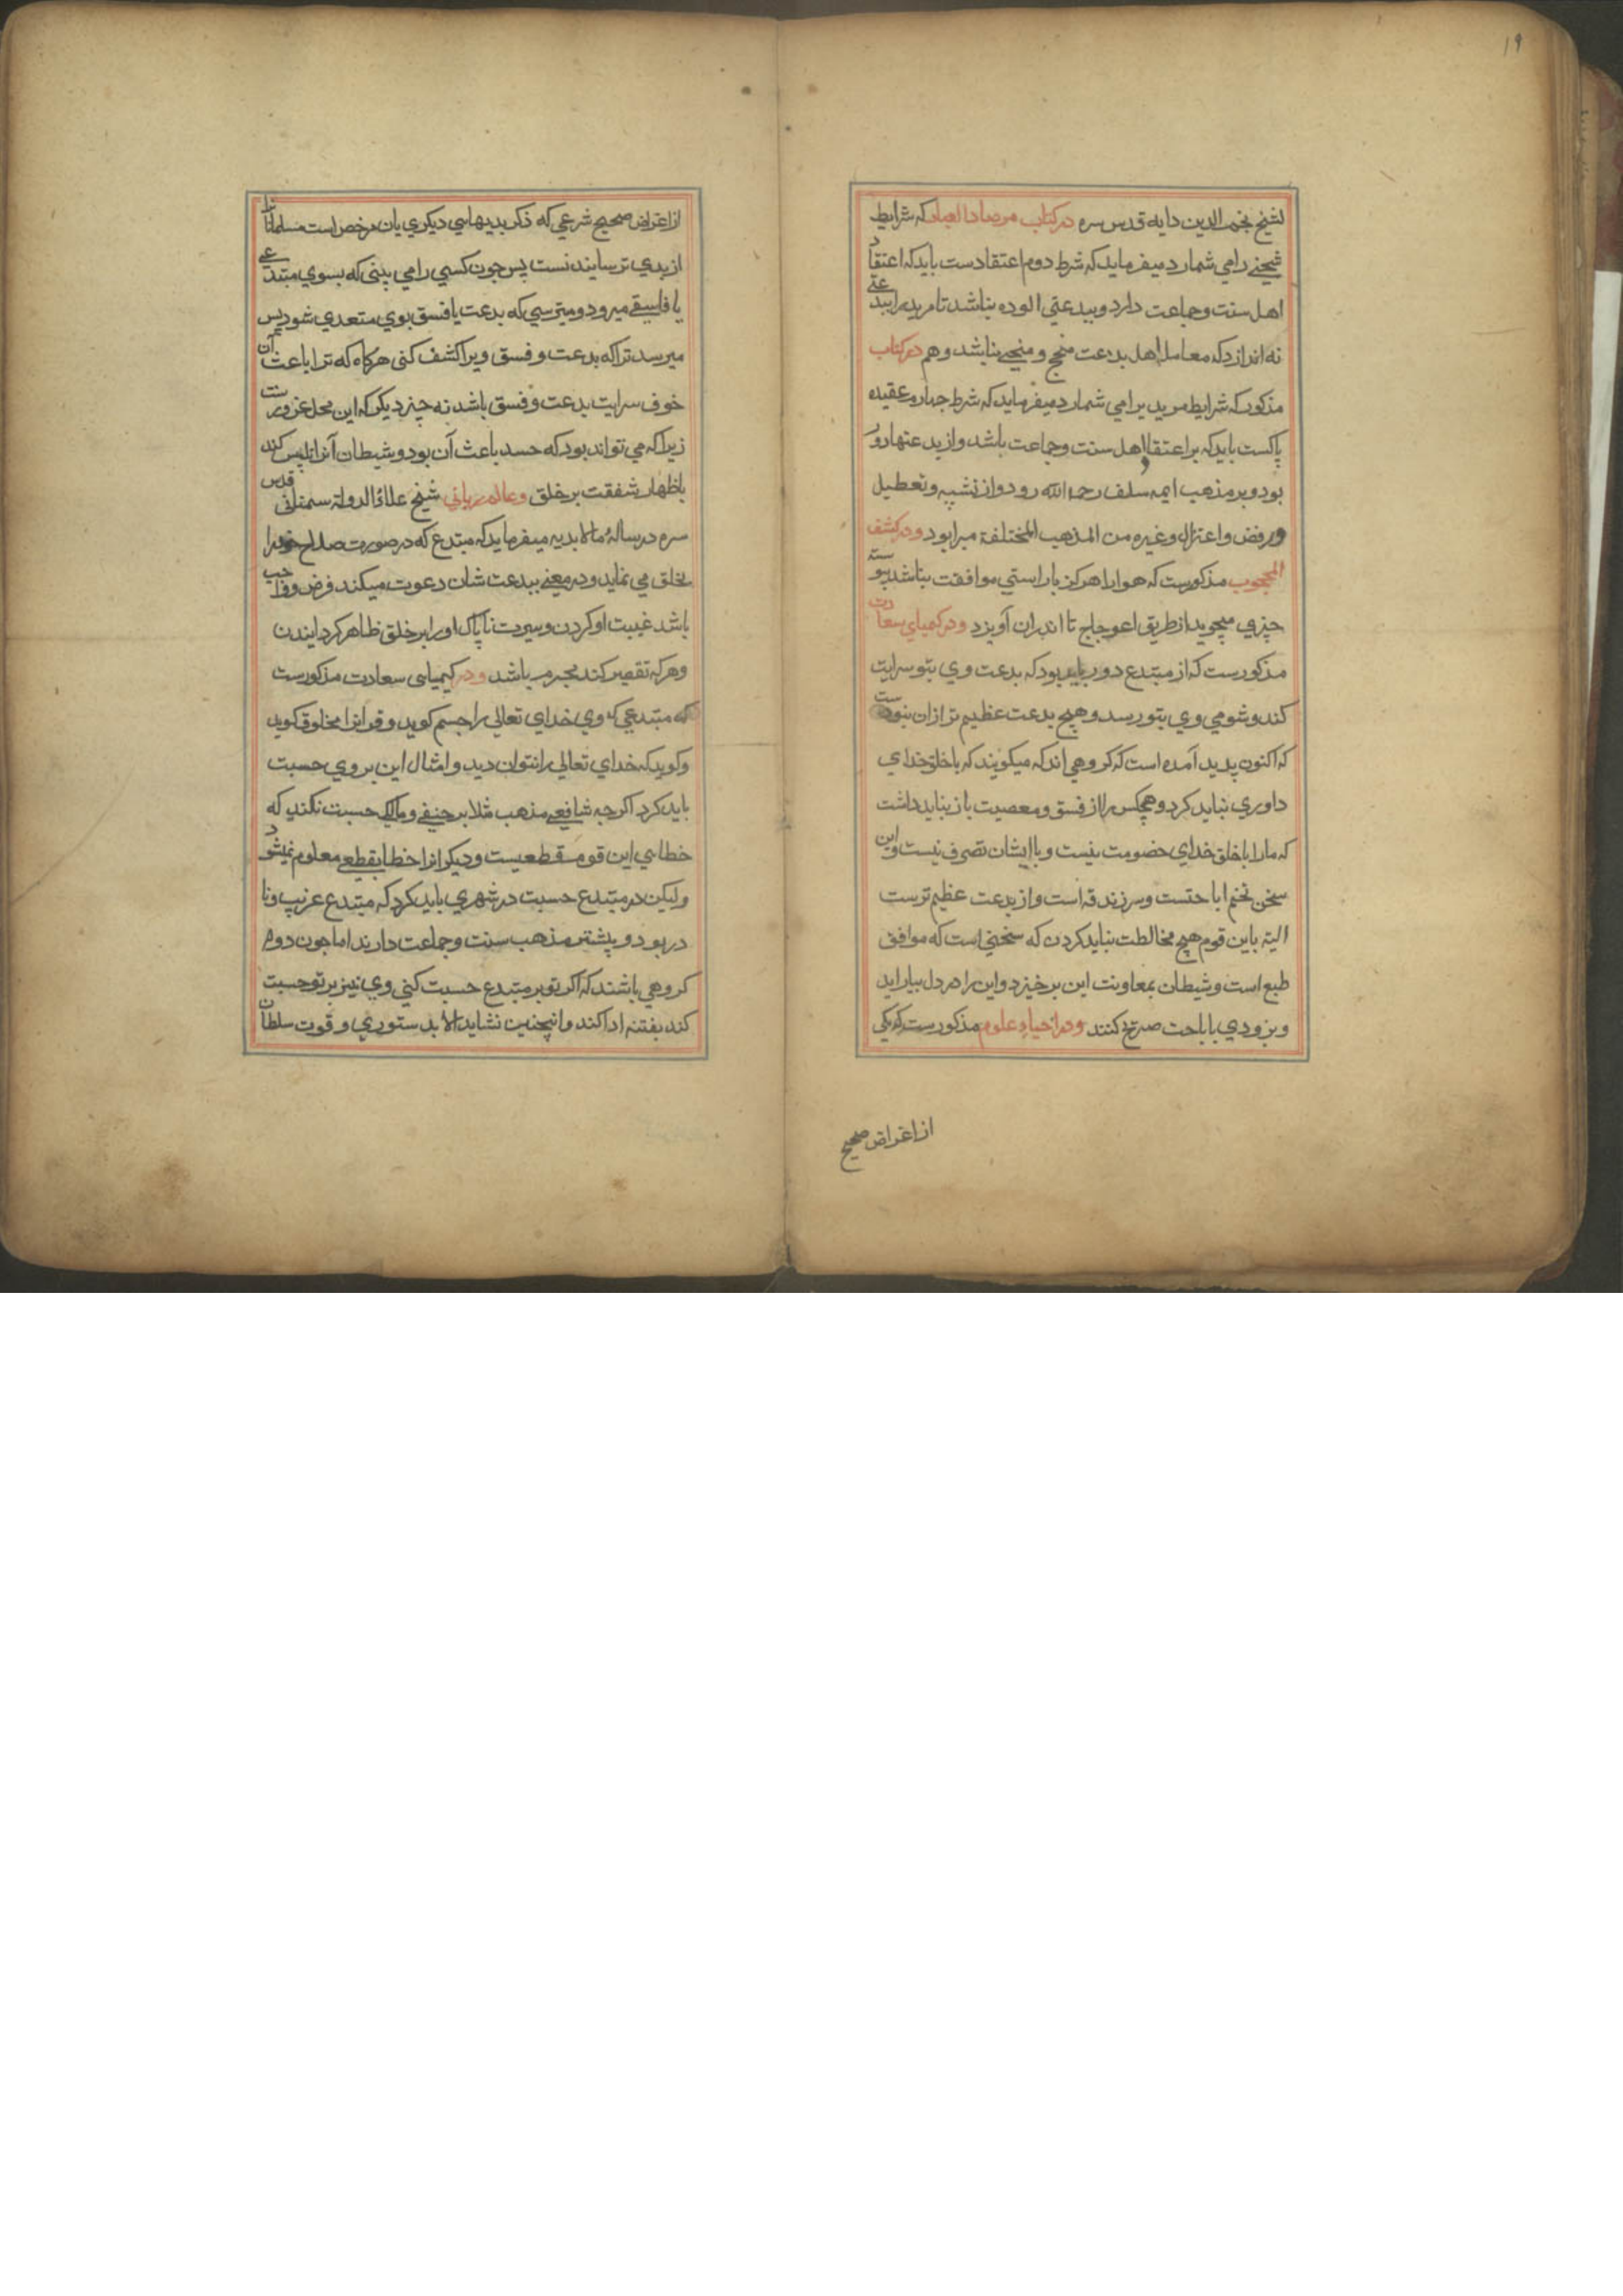 ۱۹
لشیخ نجم الدین دایه قدس سره در کتاب مرصاد العباد که شرایط
شیخی را می شمارد میفرماید که شرط دوم اعتقادست باید که اعتقاد
اهل سنت وجماعت دارد و ببدعتی الوده نباشد تا مرید را ببدعتی
نه اندازد که معامله اهل بدعت منجح و منجی نباشد و هم در کتاب
مذکور که شرایط مرید یرا می شمارد میفرماید که شرط چهارم عقیده
پاکست باید که بر اعتقاد اهل سنت وجماعت باشد و از بدعتها دور
بود و بر مذهب ایمه سلف رحمه الله رود و از تشبیه و تعطیل
و رفض و اعتزال و غیره من المذهب المختلفة مبرا بود و در کشف
المحجوب مذکورست که هوا را هرکز با راستی موافقت نباشد پیوسته
چیزی میجوید از طریق اعوجاج تا اندران آویزد و در کمیای سعادت
مذکورست که از مبتدع دور باید بود که بدعت وی بتو سرایت
کند و شومی وی بتو رسد و هیچ بدعت عظیم تر ازان نبودست
که اکنون پدید آمده است که کروهی اند که میکویند که با خلق خدای
داوری نباید کرد و هیچکس را از فسق و معصیت باز نباید داشت
که ما را با خلق خدای خصومت نیست و با ایشان تصرف نیست و این
سخن تخم اباحتست و سر زندقه است و از بدعت عظیم ترست
البته باین قوم هیچ مخالطت نباید کردن که سخنی است که موافق
طبع است و شیطان بمعاونت این برخیزد و این را در دل بیاراید
و بزودی باباحت صریح کنند و در احیاء علوم مذکورست که یکی
از اغراض صحیح
از اغراض صحیح شرعی که ذکر بدیهای دیکری بان مرخص است مسلمانانرا
از بدی ترسانیدنست پس چون کسی را می بینی که بسوی مبتدعی
یا فاسقی میرود و میترسی که بدعت یا فسق بوی متعدی شود پس
میرسد ترا که بدعت و فسق ویرا کشف کنی هرکاه که ترا باعث آن
خوف سرایت بدعت و فسق باشد نه چیز دیکر که این محل غرورست
زیرا که می تواند بود که حسد باعث آن بود و شیطان آنرا تلبیس کند
باظهار شفقت بر خلق و عالم ربانی شیخ علاؤ الدولة سمنانی قدس
سره در رسالهٔ مالابدیه میفرماید که مبتدع که در صورت صلاح خودرا
بخلق می نماید و در معنی ببدعت شان دعوت میکند فرض و واجب
باشد غیبت او کردن و سیرت ناپاک او را بر خلق ظاهر کردایندن
و هرکه تقصیر کند مجرم باشد و در کیمیای سعادت مذکورست
که مبتدعی که وی خدای تعالی را جسم کوید و قرانرا مخلوق کوید
و کوید که خدای تعالی را نتوان دید و امثال این بر وی حسبت
باید کرد اکرچه شافعی مذهب مثلا بر حنیفی و مالکی حسبت نکند که
خطای این قوم قطعیست و دیکرانرا خطا بقطعی معلوم نمیشود
ولیکن در مبتدع حسبت در شهری باید کرد که مبتدع غریب و نا
در بود و بیشتر مذهب سنت وجماعت دارند اما چون دوم
کروهی باشند که اکر تو بر مبتدع حسبت کنی وی نیز بر تو حسبت
کند بفتنه ادا کند و اینچنین نشاید الا بدستوری و قوت سلطان